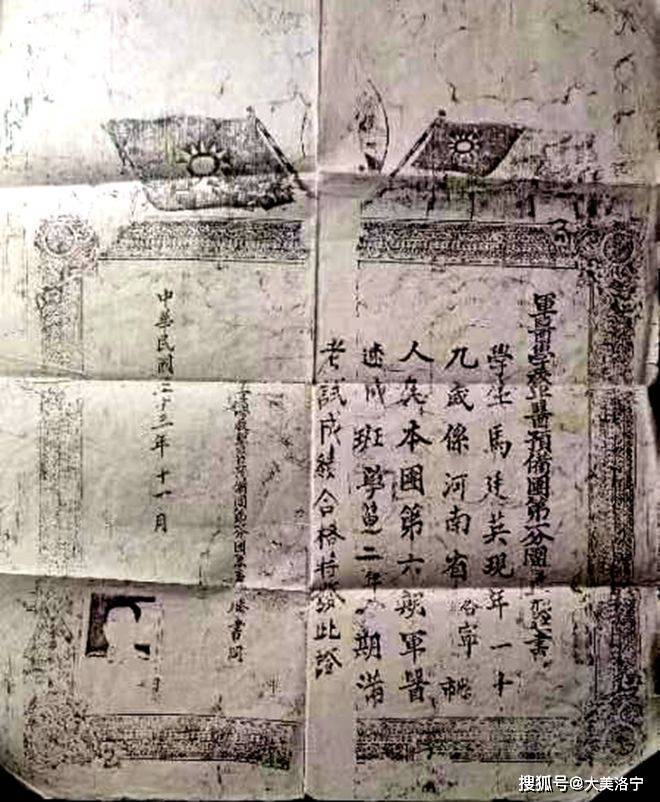 軍醫學校軍醫預備團第一分團畢業證書
學生馬廷英現年一十
九歲係河南省洛寧縣
人在本團第六期軍醫
速成班學習二年八期滿
考試成績合格特發此證
分團
滕書同
中華民國三十三年十一月
搜狐号@大美洛宁